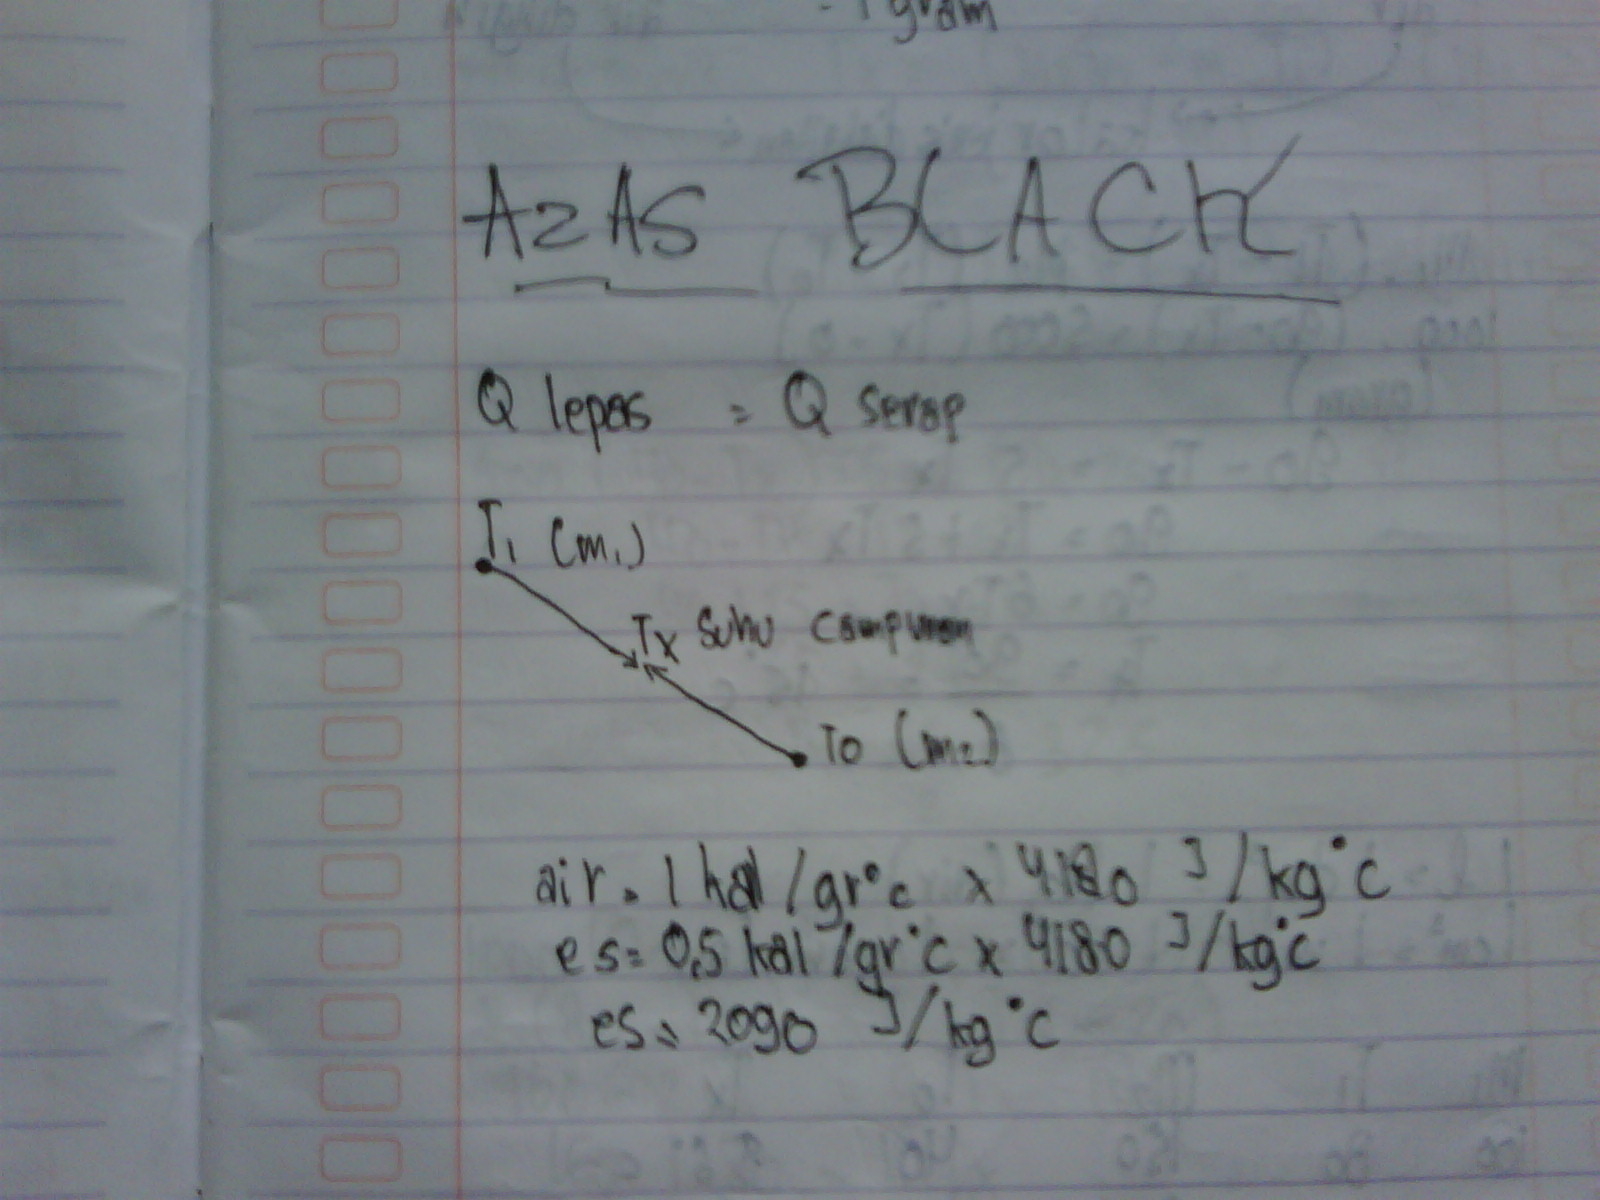 - 1 gram
AZAS BLACK
Q lepas = Q serap
T₁ (m₁)
Tx suhu campuran
To (m₂)
air = 1 kal/gr°c x 4180 J/kg°c
es = 0,5 kal/gr°c x 4180 J/kg°c
es = 2090 J/kg°c